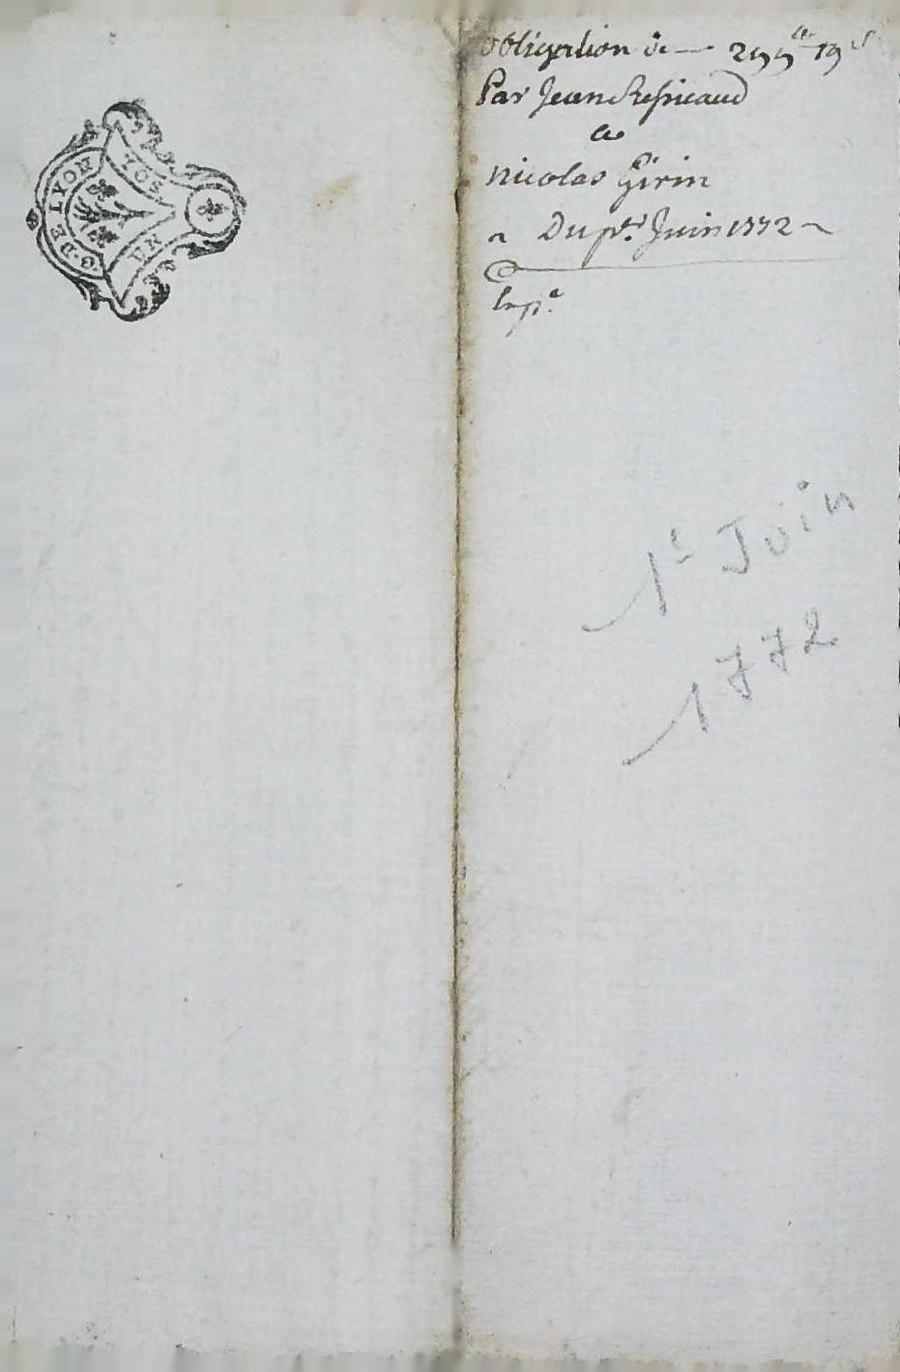 G. DE LYON
UN SOL
obligation de — 299ᵗᵗ 19ˢ
Par Jean
a
nicolas Girin
Du pr. Juin 1772
Exp.ᵉ
1ᵉ Juin
1772